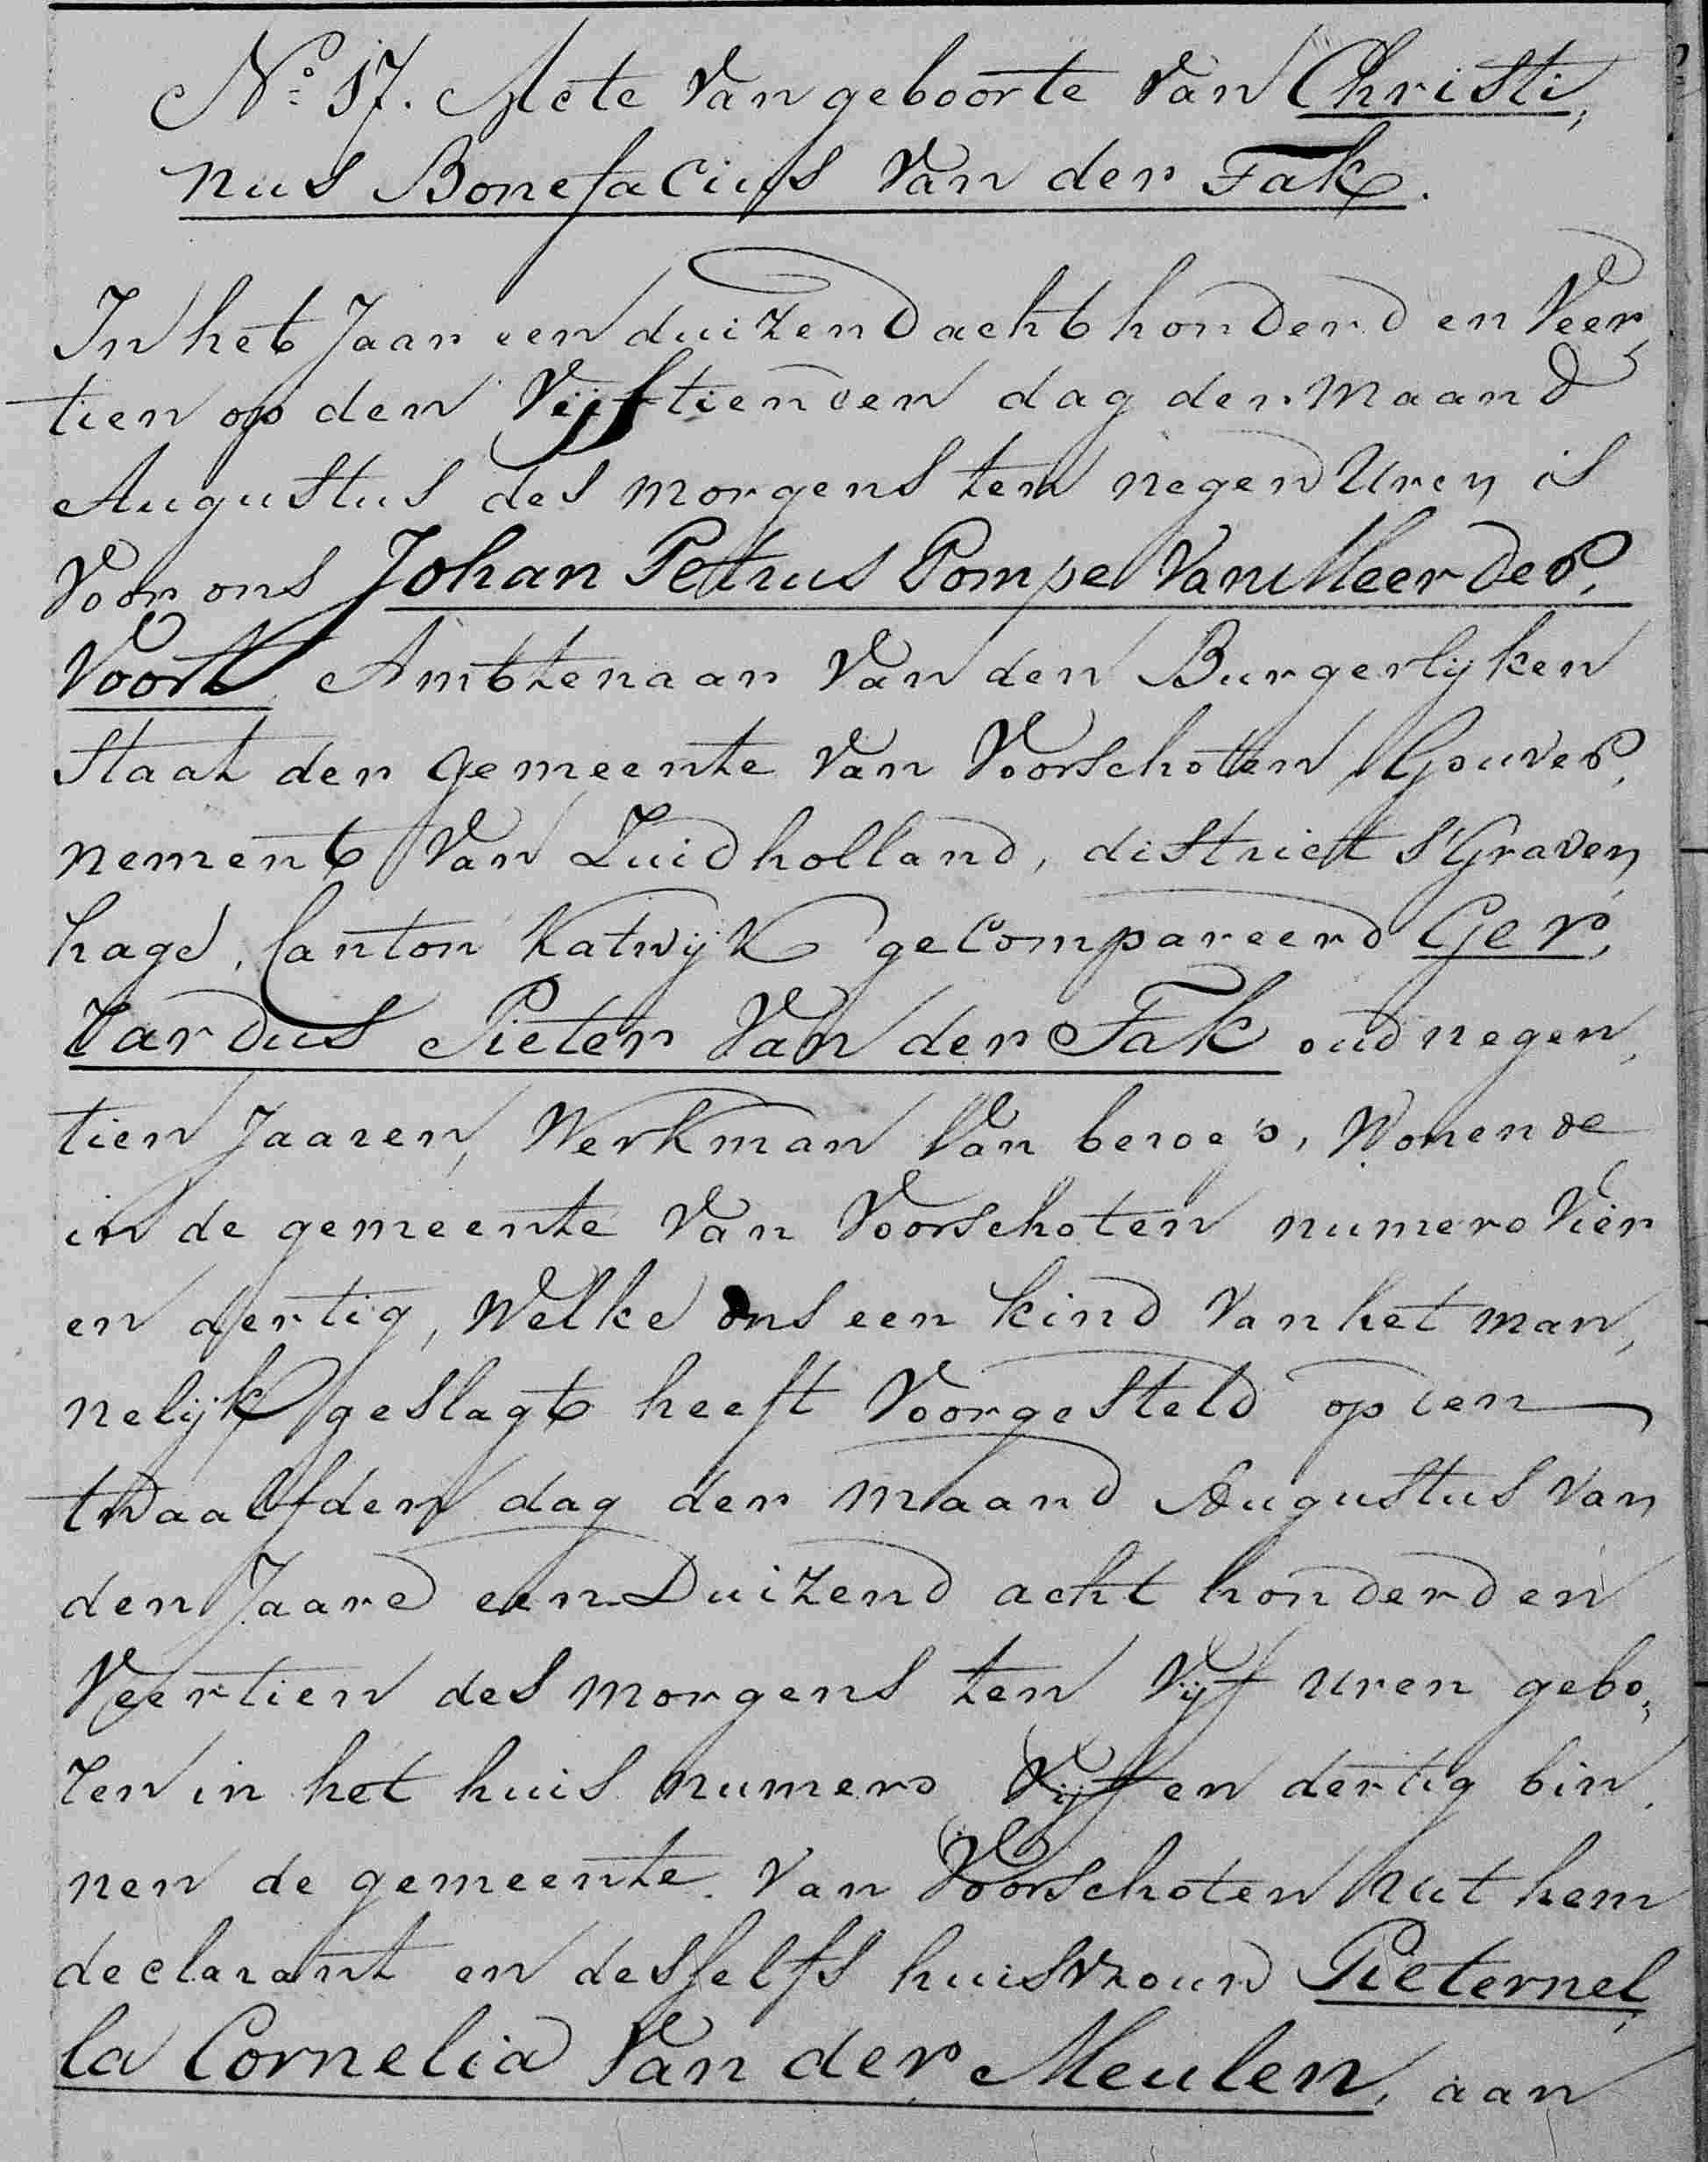 No 17. Acte van geboorte van Christi,
nus Bonefacius van der Fak.
In het Jaar een duizend acht honderd en Veer,
tien op den Vijftienden dag der maand
Augustus des morgens ten negen Uren is
voor ons Johan Petrus Pompe van Meerder,
voort Ambtenaar van den Burgerlyken
Staat der gemeente van Voorschoten, Gouver,
nement van Zuidholland, district s'Graven,
hage, Canton Katwijk gecompareerd Ger,
rardus Pieter van der Fak oud negen,
tien Jaaren, Werkman van beroep, Wonende
in de gemeente van Voorschoten numero Vier
en dertig, Welke ons een kind van het man,
nelijk geslagt heeft Voorgesteld op den
twaalfden dag der maand Augustus van
den Jaare een Duizend acht honderd en
Veertien des morgens ten Vijf uren gebo,
ren in het huis numero Vijf en dertig bin,
nen de gemeente van Voorschoten uit hem
declarant en desselfs huisvrouw Pieternel,
la Cornelia van der Meulen, aan